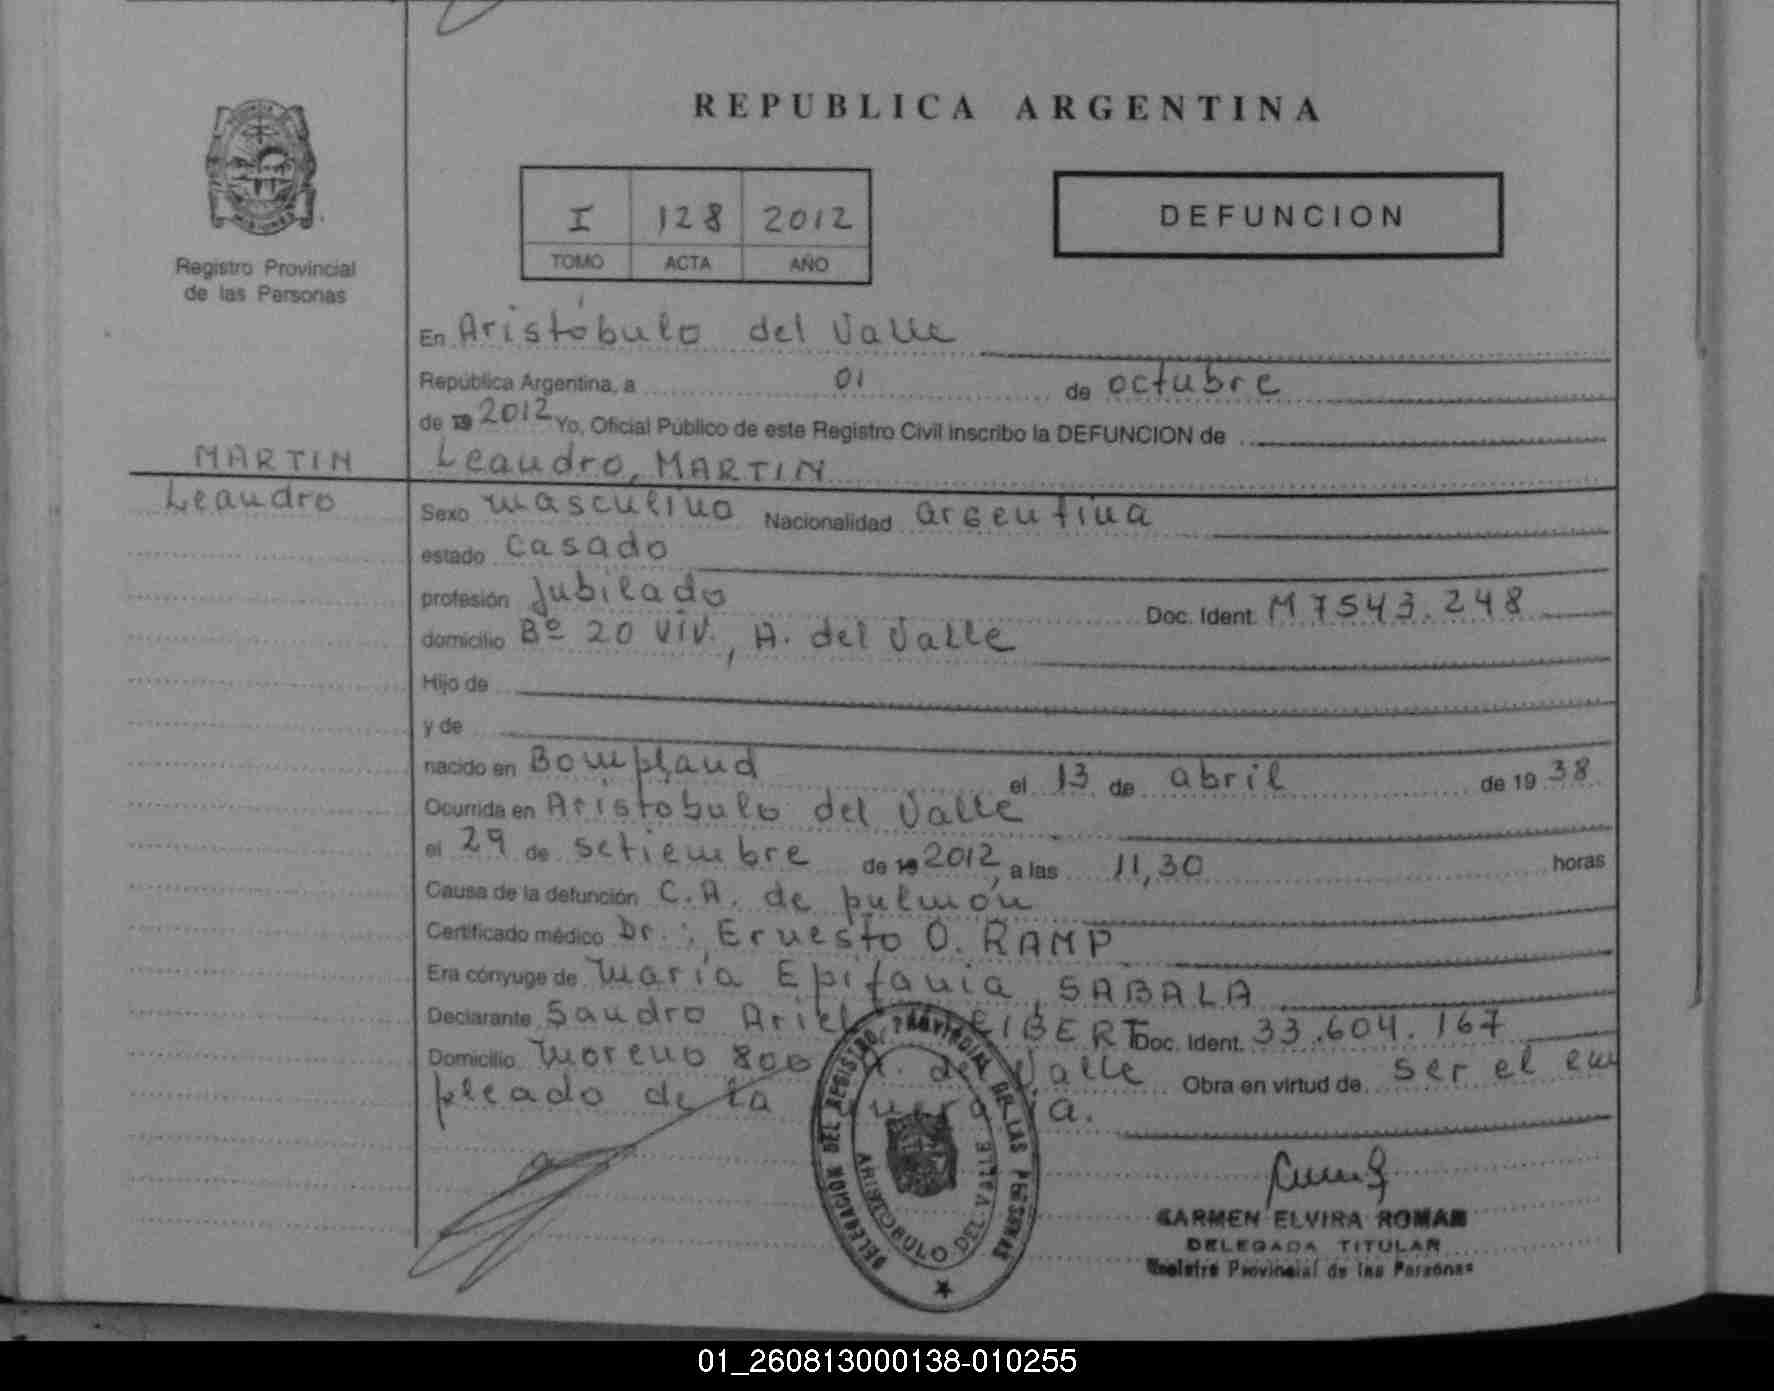 REPUBLICA ARGENTINA
I 128 2012
TOMO ACTA AÑO
DEFUNCION
Registro Provincial
de las Personas
En Aristóbulo del Valle
República Argentina, a 01 de octubre
de 19 2012 Yo, Oficial Público de este Registro Civil inscribo la DEFUNCION de
MARTIN
Leandro
Leandro, MARTIN
Sexo masculino Nacionalidad argentina
estado casado
profesión jubilado Doc. Ident. M 7543.248
domicilio Bº 20 viv., A. del Valle
Hijo de
y de
nacido en Bompland el 13 de abril de 19 38
Ocurrida en Aristobulo del Valle
el 29 de setiembre de 19 2012, a las 11,30 horas
Causa de la defunción C.A. de pulmón
Certificado médico Dr.: Ernesto O. RAMP
Era cónyuge de María Epifania, SABALA
Declarante Sandro Ariel Doc. Ident. 33.604.167
Domicilio Moreno 800 A. del Valle Obra en virtud de ser el em
pleado de la
DELEGACION DEL REGISTRO PROVINCIAL DE LAS PERSONAS
ARISTOBULO DEL VALLE
CARMEN ELVIRA ROMAN
DELEGADA TITULAR
Registro Provincial de las Personas
01_260813000138-010255